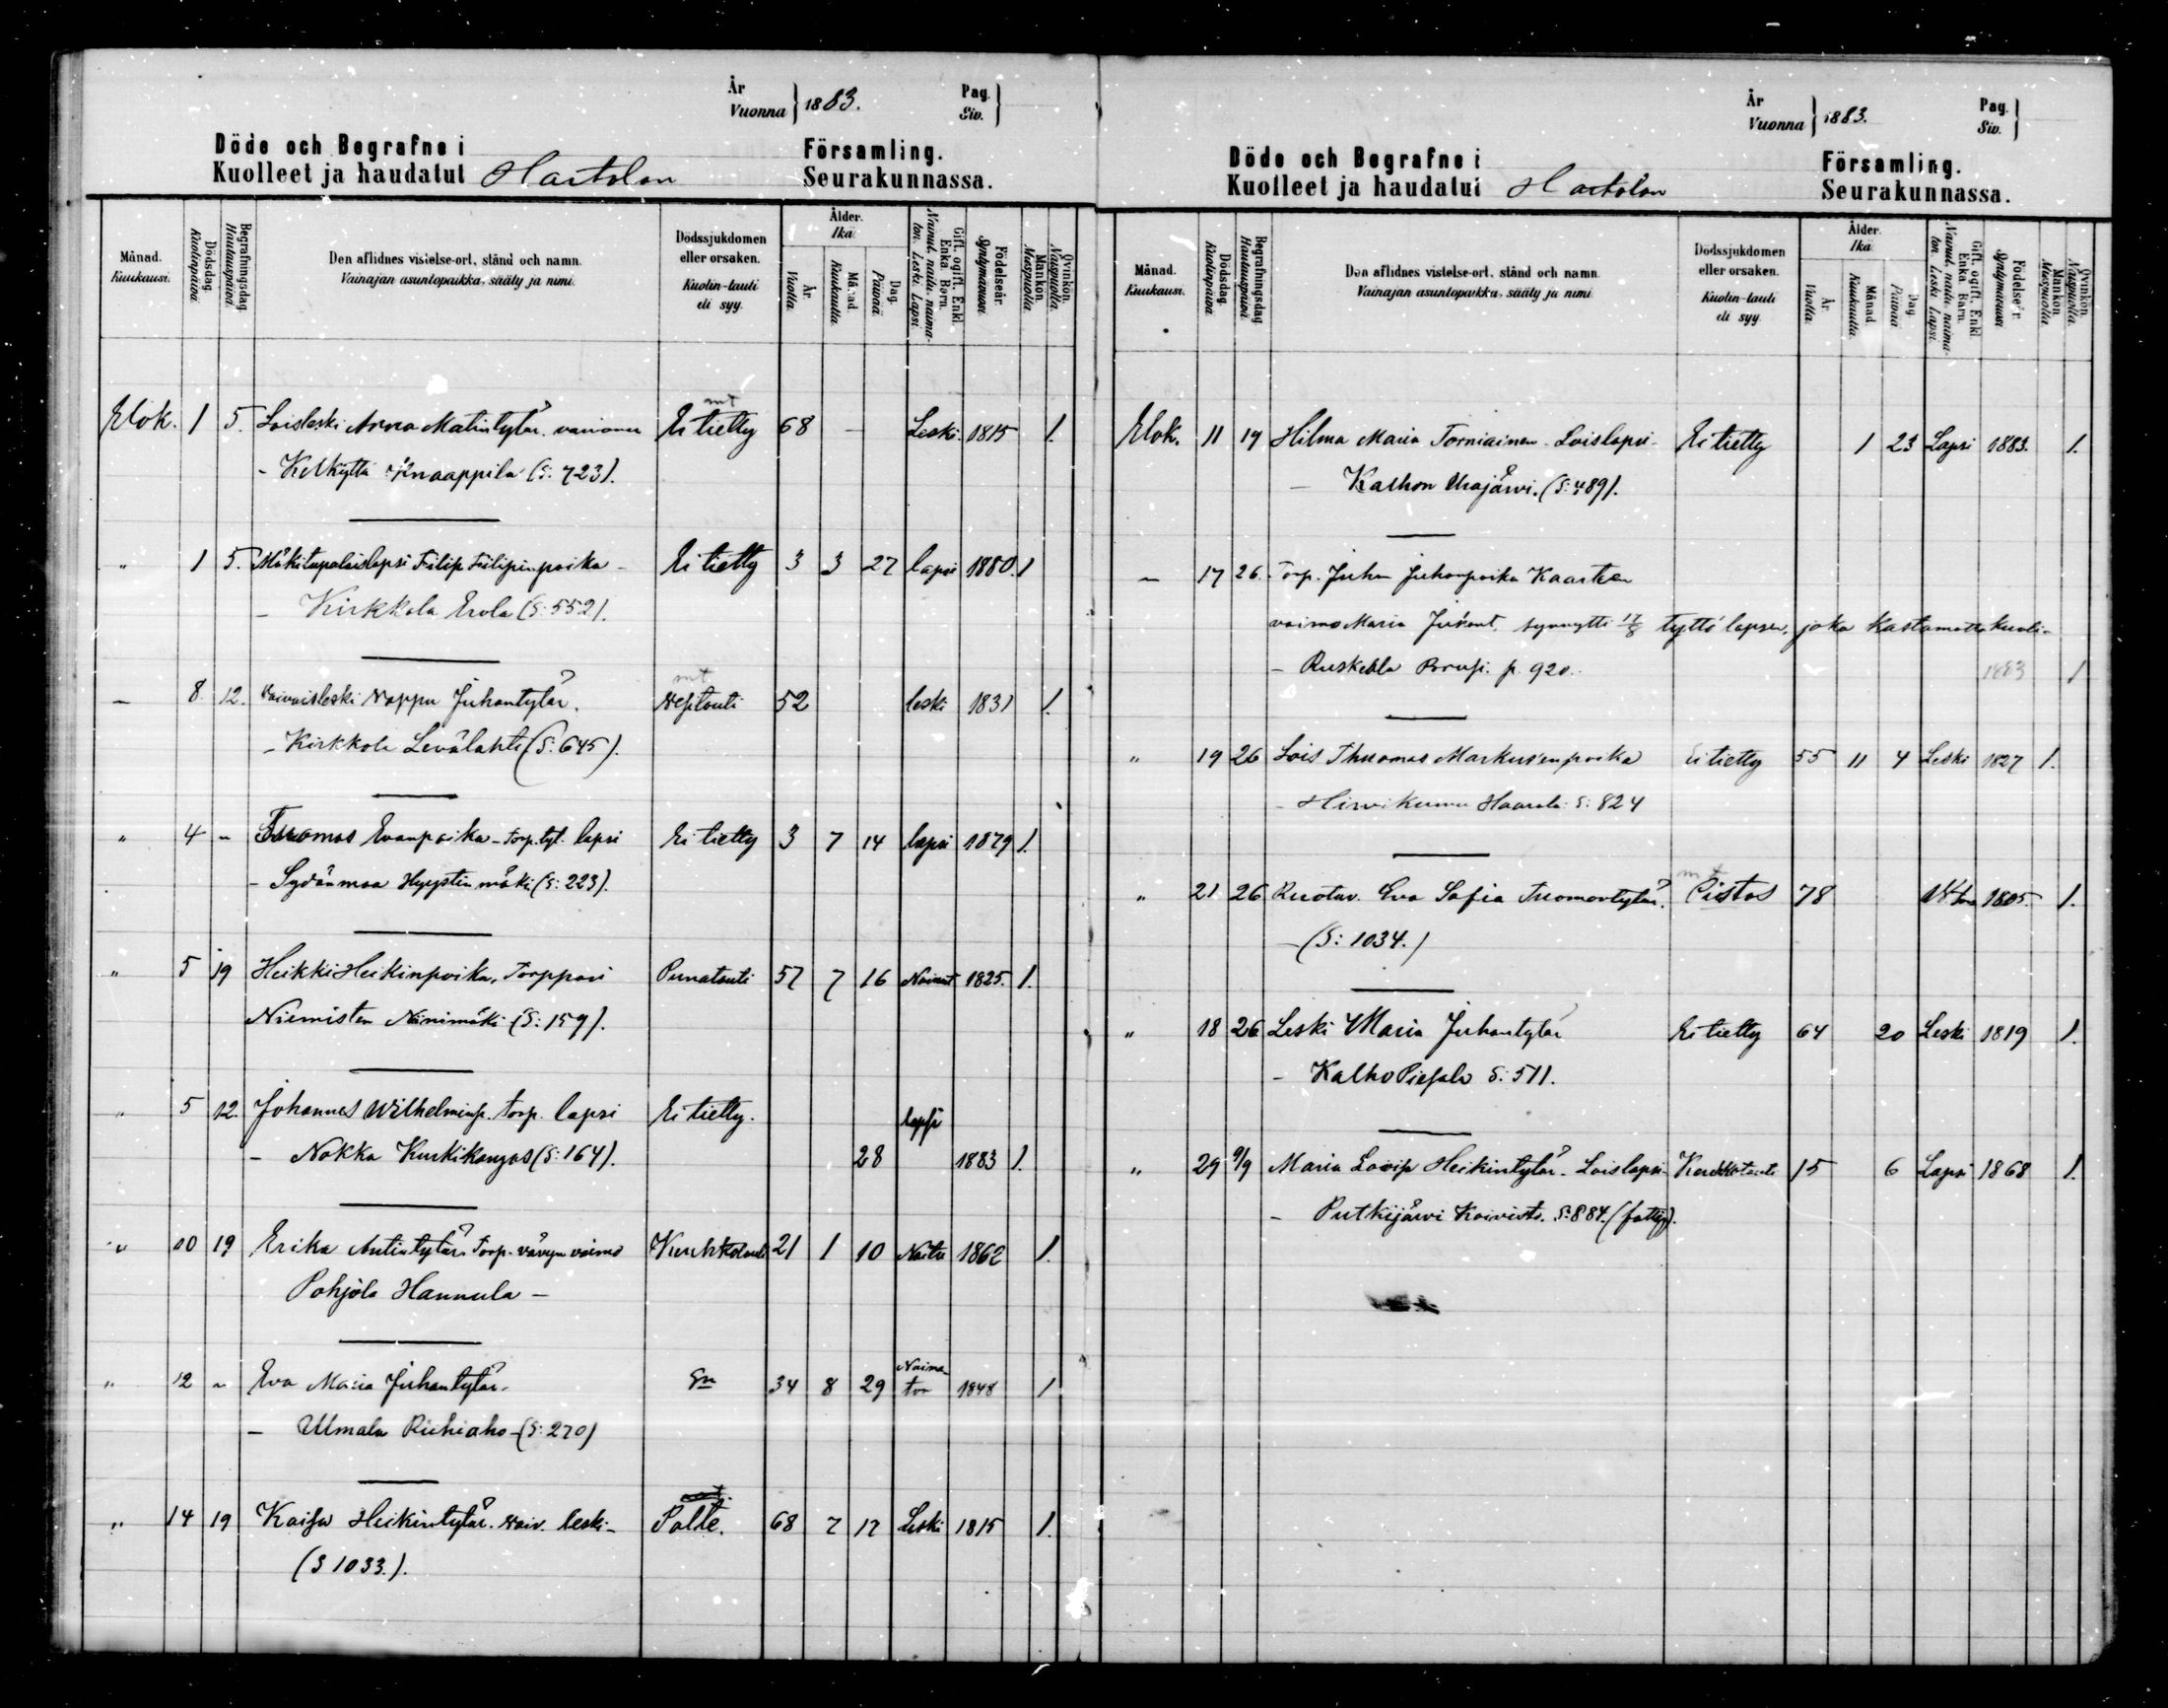 År
Vuonna } 1883.
Pag.
Siv. }
Döde och Begrafne i
Kuolleet ja haudatut Hartolan
Församling.
Seurakunnassa.
Månad.
Kuukausi.
Dödsdag.
Kuolinpäivä.
Begrafningsdag.
Hautauspäivä.
Den aflidnes vistelse-ort, stånd och namn.
Vainajan asuntopaikka, sääty ja nimi.
Dödssjukdomen
eller orsaken.
Kuolin-tauti
eli syy.
Ålder.
Ikä.
År.
Vuotta.
Månad.
Kuukautta.
Dag.
Päivää.
Gift, ogift, Enkl.
Enka. Barn.
Nainut, naitu, naima-
ton. Leski. Lapsi.
Födelseår.
Syntymävuosi.
Mankön.
Miespuolia.
Qvinkön.
Naispuolia.
Elok. 1 5. Loisleski Anna Matintytär Ei tietty 68 — Leski 1815 1.
Knaappila (S: 723).
" 1 5. Mäkitupalaislapsi Filip Filipinpoika Ei tietty 3 3 27 lapsi 1880. 1
– Kirkkola Erola (S: 552).
— 8. 12. Vaivaisleski Nappu Juhantytär. 52 leski 1831 1.
– Kirkkola Levälahti (S: 645).
" 4 – Tuomas Evanpoika – Torp. tyt. lapsi Ei tietty 3 7 14 lapsi 1879 1.
– Sydänmaa (S: 223).
" 5 19 Heikki Heikinpoika, Torppari Punatauti 57 7 16 Nainut 1825. 1.
Niemisten Niinimäki (S: 159).
" 5 12. Johannes Wilhelminp. torp. lapsi Ei tietty. lapsi
– Nokka Kurkikangas (S: 164). 28 1883 1.
" 10 19 Erika Antintytär Torp. vävyn vaimo 21 1 10 Naitu 1862 1.
Pohjola Hannula –
" 12 " Eva Maria Juhantytär. Sn 34 8 29 Naima-
ton 1848 1
– Ulmala Riihiaho – (S: 270)
" 14 19 Kaisa Heikintytär. vaiv. leski – Polte. 68 7 17 Leski 1815 1.
(S 1033.).
År
Vuonna } 1883.
Pag.
Siv. }
Döde och Begrafne i
Kuolleet ja haudatut Hartolan
Församling.
Seurakunnassa.
Månad.
Kuukausi.
Dödsdag.
Kuolinpäivä.
Begrafningsdag
Hautauspäivä.
Den aflidnes vistelse-ort, stånd och namn.
Vainajan asuntopaikka, sääty ja nimi
Dödssjukdomen
eller orsaken.
Kuolin-tauti
eli syy.
Ålder.
Ikä.
År.
Vuotta.
Månad.
Kuukautta.
Dag.
Päivää
Gift, ogift, Enkl.
Enka. Barn.
Nainut, naitu, naima-
ton. Leski. Lapsi.
Födelseår.
Syntymävuosi
Mankön.
Miespuolia.
Qvinkön.
Naispuolia.
Elok. 11 19 Hilma Maria Torniainen. Loislapsi – Ei tietty 1 23 Lapsi 1883. 1.
– Kalhon Urajärvi. (S: 489).
— 17 26. Torp. Juhan Juhonpoika Kaartisen
vaimo Maria Juhont. synnytti 17/8 tyttö lapsen, joka kastamatta kuoli –
– Ruskeala p. 920. 1883 1
" 19 26 Lois Thuomas Markusenpoika Ei tietty 55 11 4 Leski 1827 1.
– Haarala S: 824
" 21 26 Ruotuv. Eva Sofia Tuomontytär. Pistos 78 1805. 1.
– (S: 1034.)
" 18 26 Leski Maria Juhantytär Ei tietty 64 20 Leski 1819 1.
– Kalho Piesala S: 511.
" 29 9/9 Maria Lovisa Heikintytär. Loislapsi 15 6 Lapsi 1868 1.
– Putkijärvi Koivisto. S: 884.